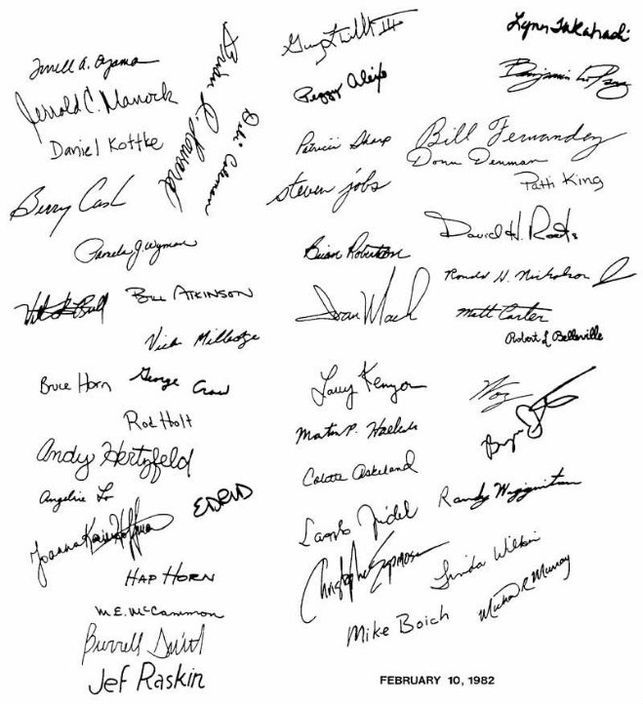 Terrell A. Oyama
Jerrold C. Manock
Daniel Kottke
Brian R. Howard
Debi Coleman
Berry Cash
Pamela J. Wyman
BILL ATKINSON
Vicki Milledge
Bruce Horn
George Crow
Rod Holt
Andy Hertzfeld
Angeline Lo
Joanna Hoffman
HAP HORN
M.E. McCammon
Burrell Smith
Jef Raskin
Peggy Alexio
Patricia Sharp
steven jobs
Brian Robertson
Ivan Mach
Larry Kenyon
Martin P. Haeberli
Colette Askeland
Laszlo Zidek
Christopher Espinosa
Mike Boich
Lynn Takahashi
Benjamin Pang
Bill Fernandez
Donn Denman
Patti King
David H. Roots
Ronald H. Nicholson
Matt Carter
Robert L Belleville
Woz
Randy Wigginton
Linda Wilkin
Michael R. Murray
FEBRUARY 10, 1982